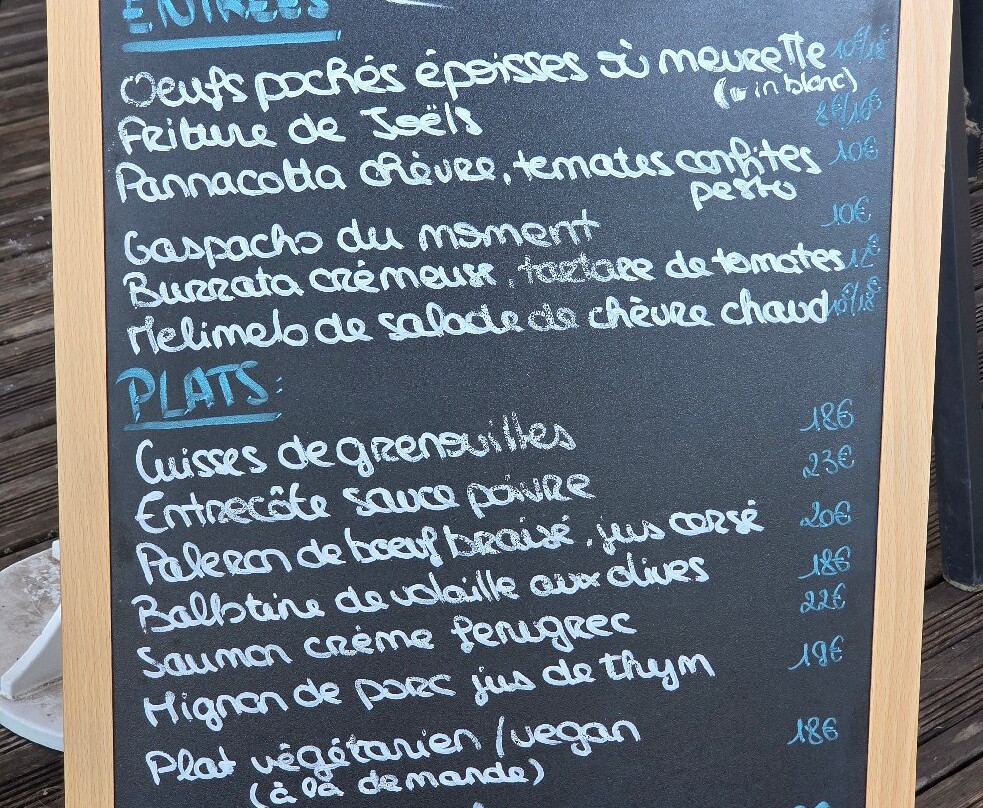 ENTRÉES
Oeufs pochés époisses où meurette 10€/18€
(vin blanc)
Friture de Joëls 8€/16€
Pannacotta chèvre, tomates confites 10€
pesto
Gaspacho du moment 10€
Burrata crémeuse, tartare de tomates 12€
Melimelo de salade de chèvre chaud 10€/18€
PLATS:
Cuisses de grenouilles 18€
Entrecôte sauce poivre 23€
Paleron de boeuf braisé, jus corsé 20€
Ballotine de volaille aux olives 18€
Saumon crème fenugrec 22€
Mignon de porc jus de thym 19€
Plat végétarien / vegan 18€
(à la demande)